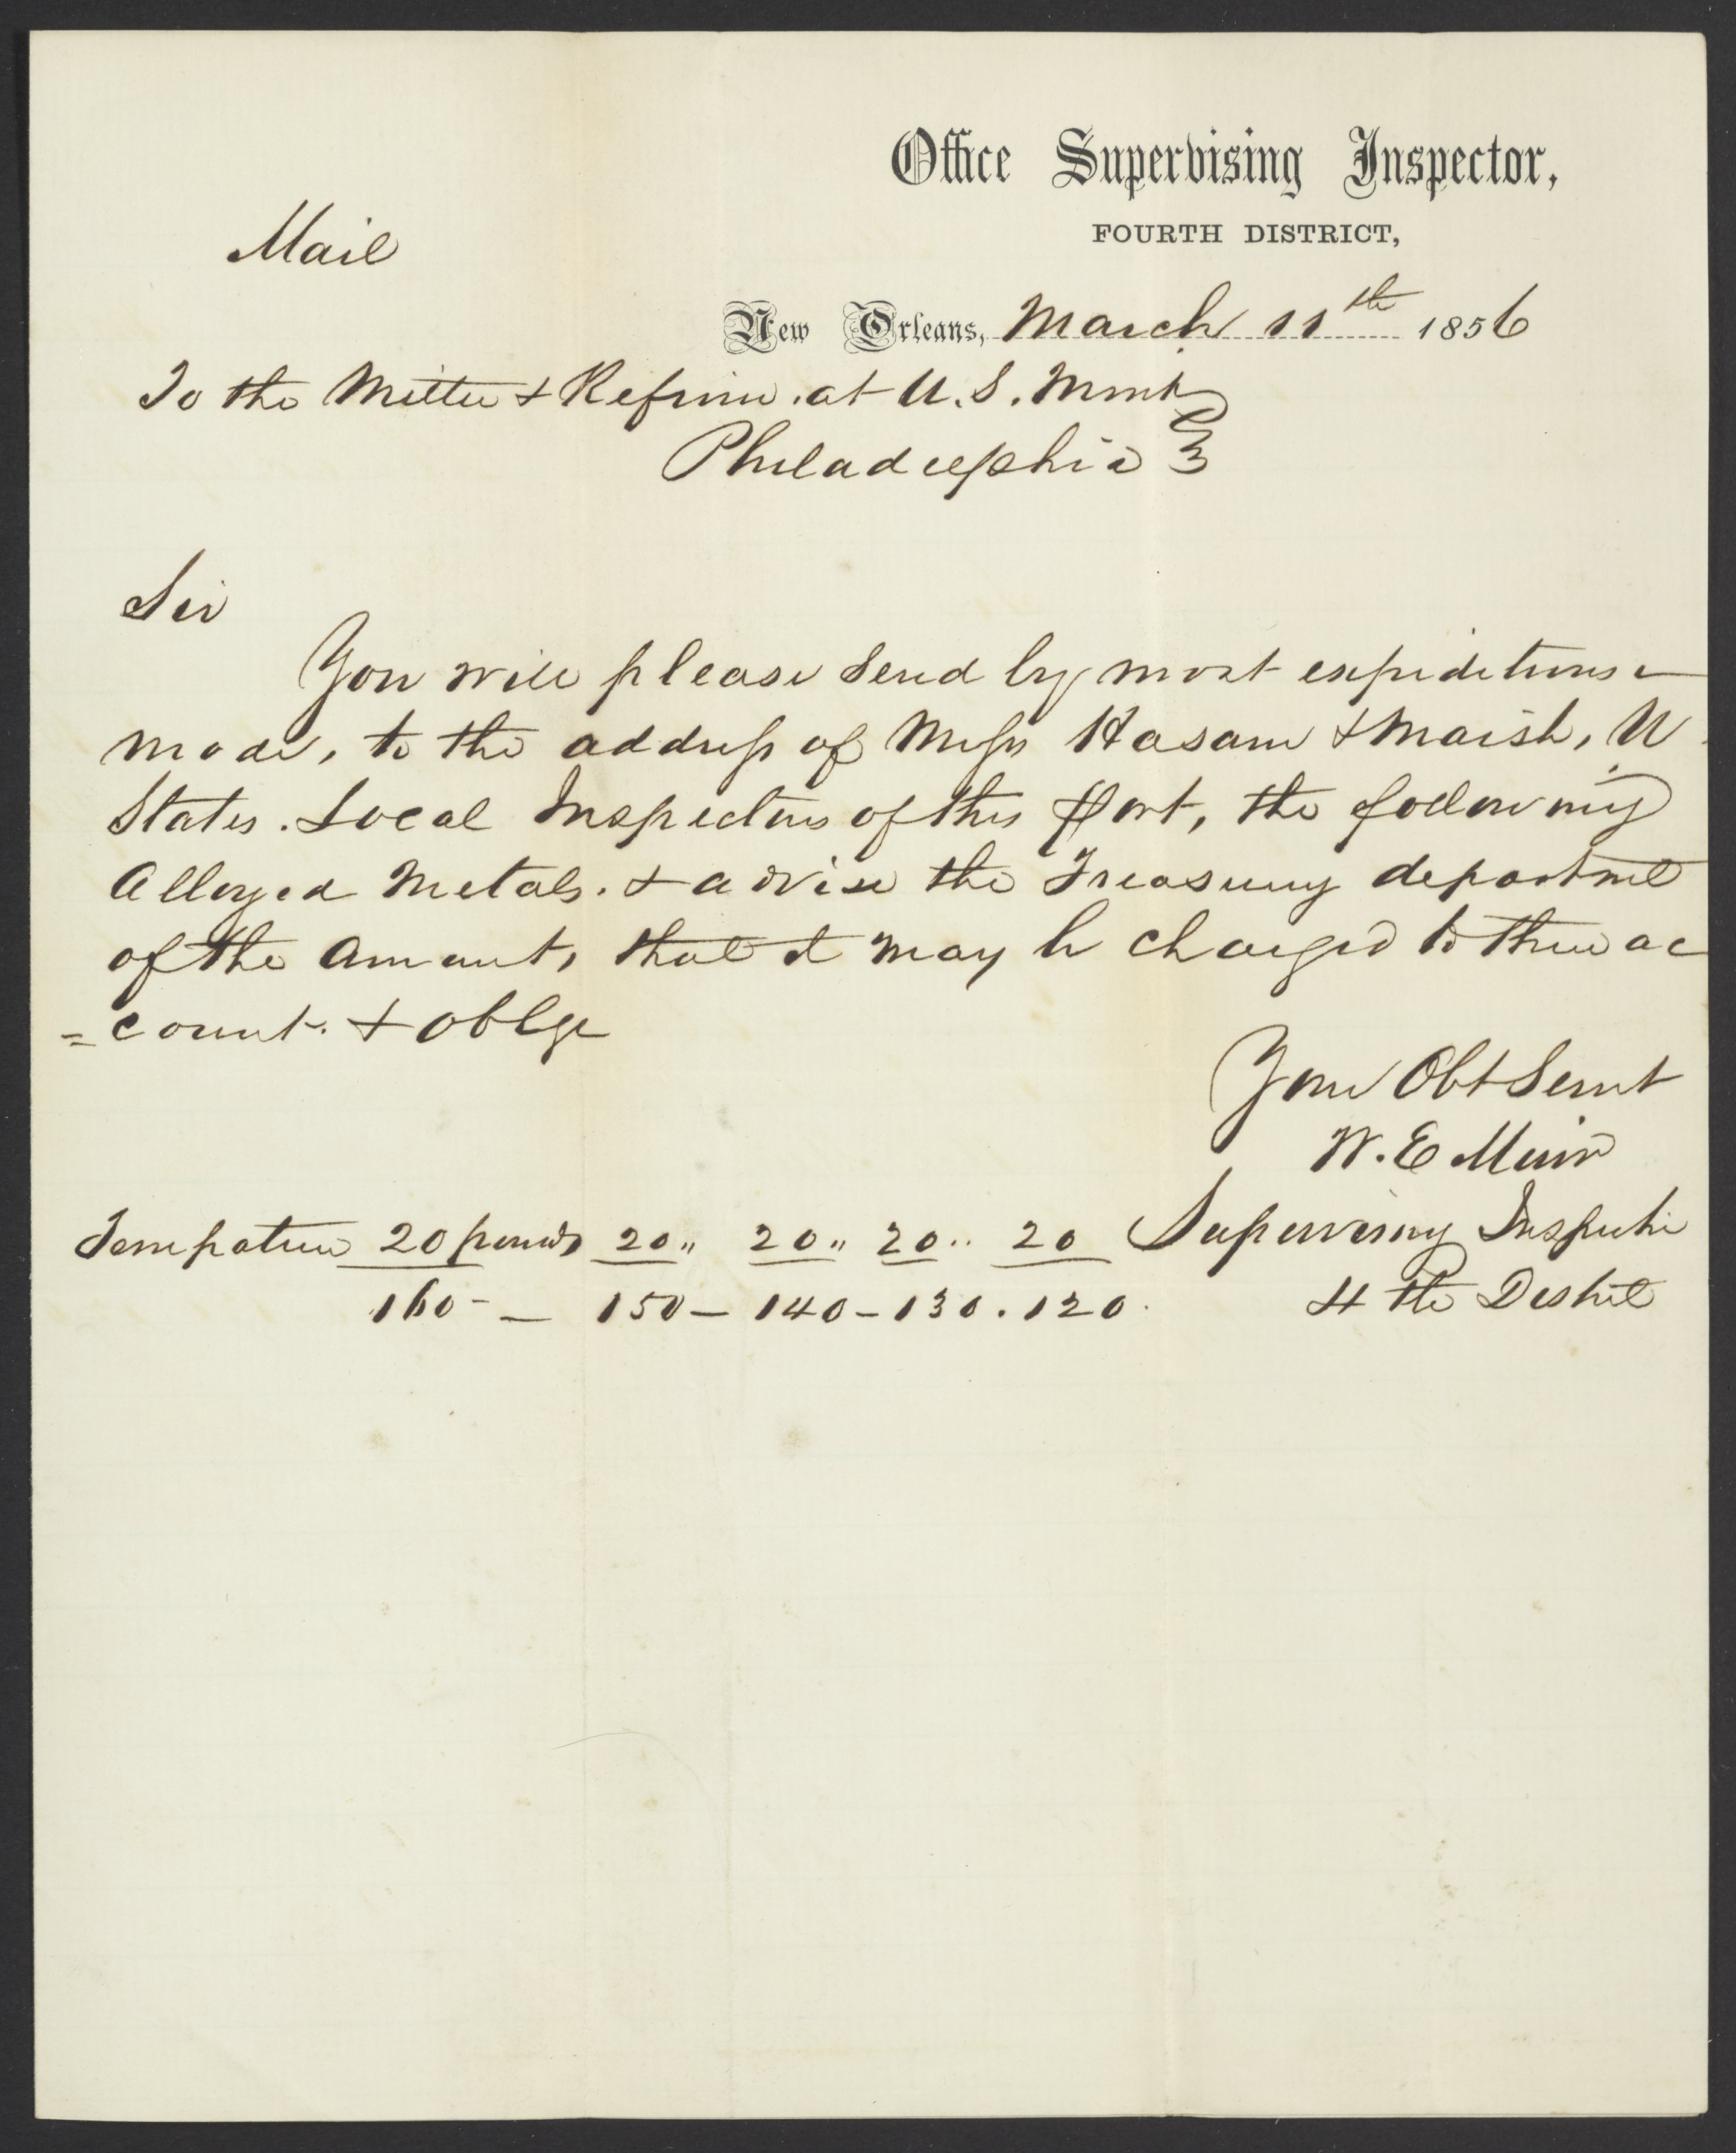 Office Supervising Inspector,
FOURTH DISTRICT,
Mail
New Orleans, March 11th 1856
To the Melter & Refiner at U.S. Mint
Philadelphia
Sir
You will please send by most expeditious
mode, to the address of Messrs & Marsh, U
States. Local Inspectors of this Port, the following
Alloyed Metals. & advise the Treasury department
of the Amount, that it may be charged to their ac
=count. & oblge
Your Obt Servt
W. E Muir
Supervising Inspector
4 th District
Temperature 20 pounds 20 " 20 " 20 " 20
160 - 150 - 140 - 130 . 120